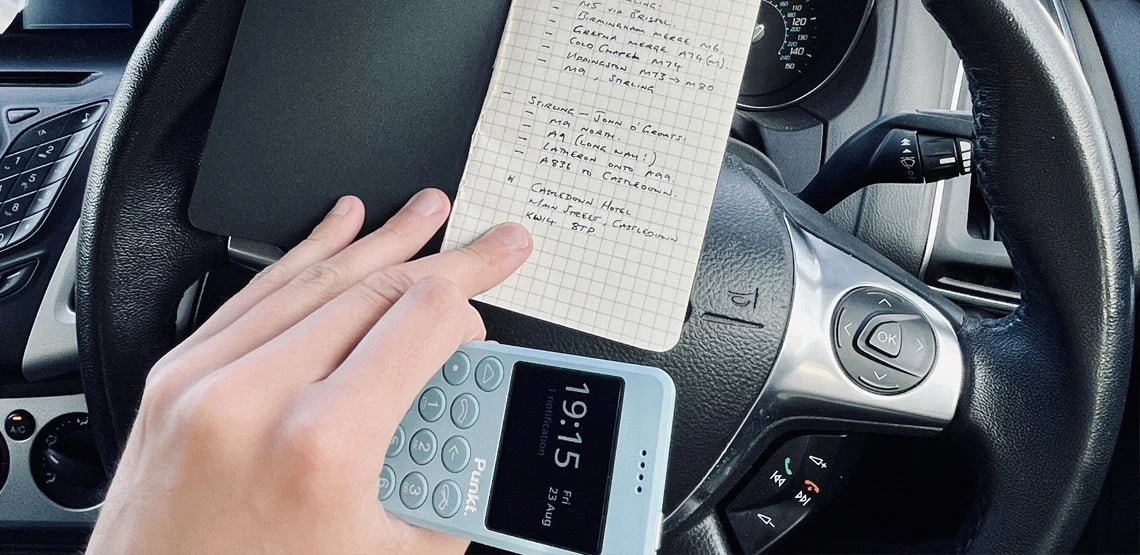 - M5 VIA BRISTOL.
- BIRMINGHAM MERGE M6.
- GRETNA MERGE A74(M)
- COLD CHAPEL M74
- UDDINGSTON M73 → M80
- M9, STIRLING
- STIRLING – JOHN O'GROATS:
- M9 NORTH.
- A9 (LONG WAY!)
- LATHERON ONTO A99.
- A836 TO CASTLEDOWN.
* CASTLEDOWN HOTEL
MAIN STREET, CASTLEDOWN
KW14 8TP
19:15
1 notification
Fri
23 Aug
Punkt.
1
2
3
6
OK
TA
1
2
5
8
A/C
120
140
150